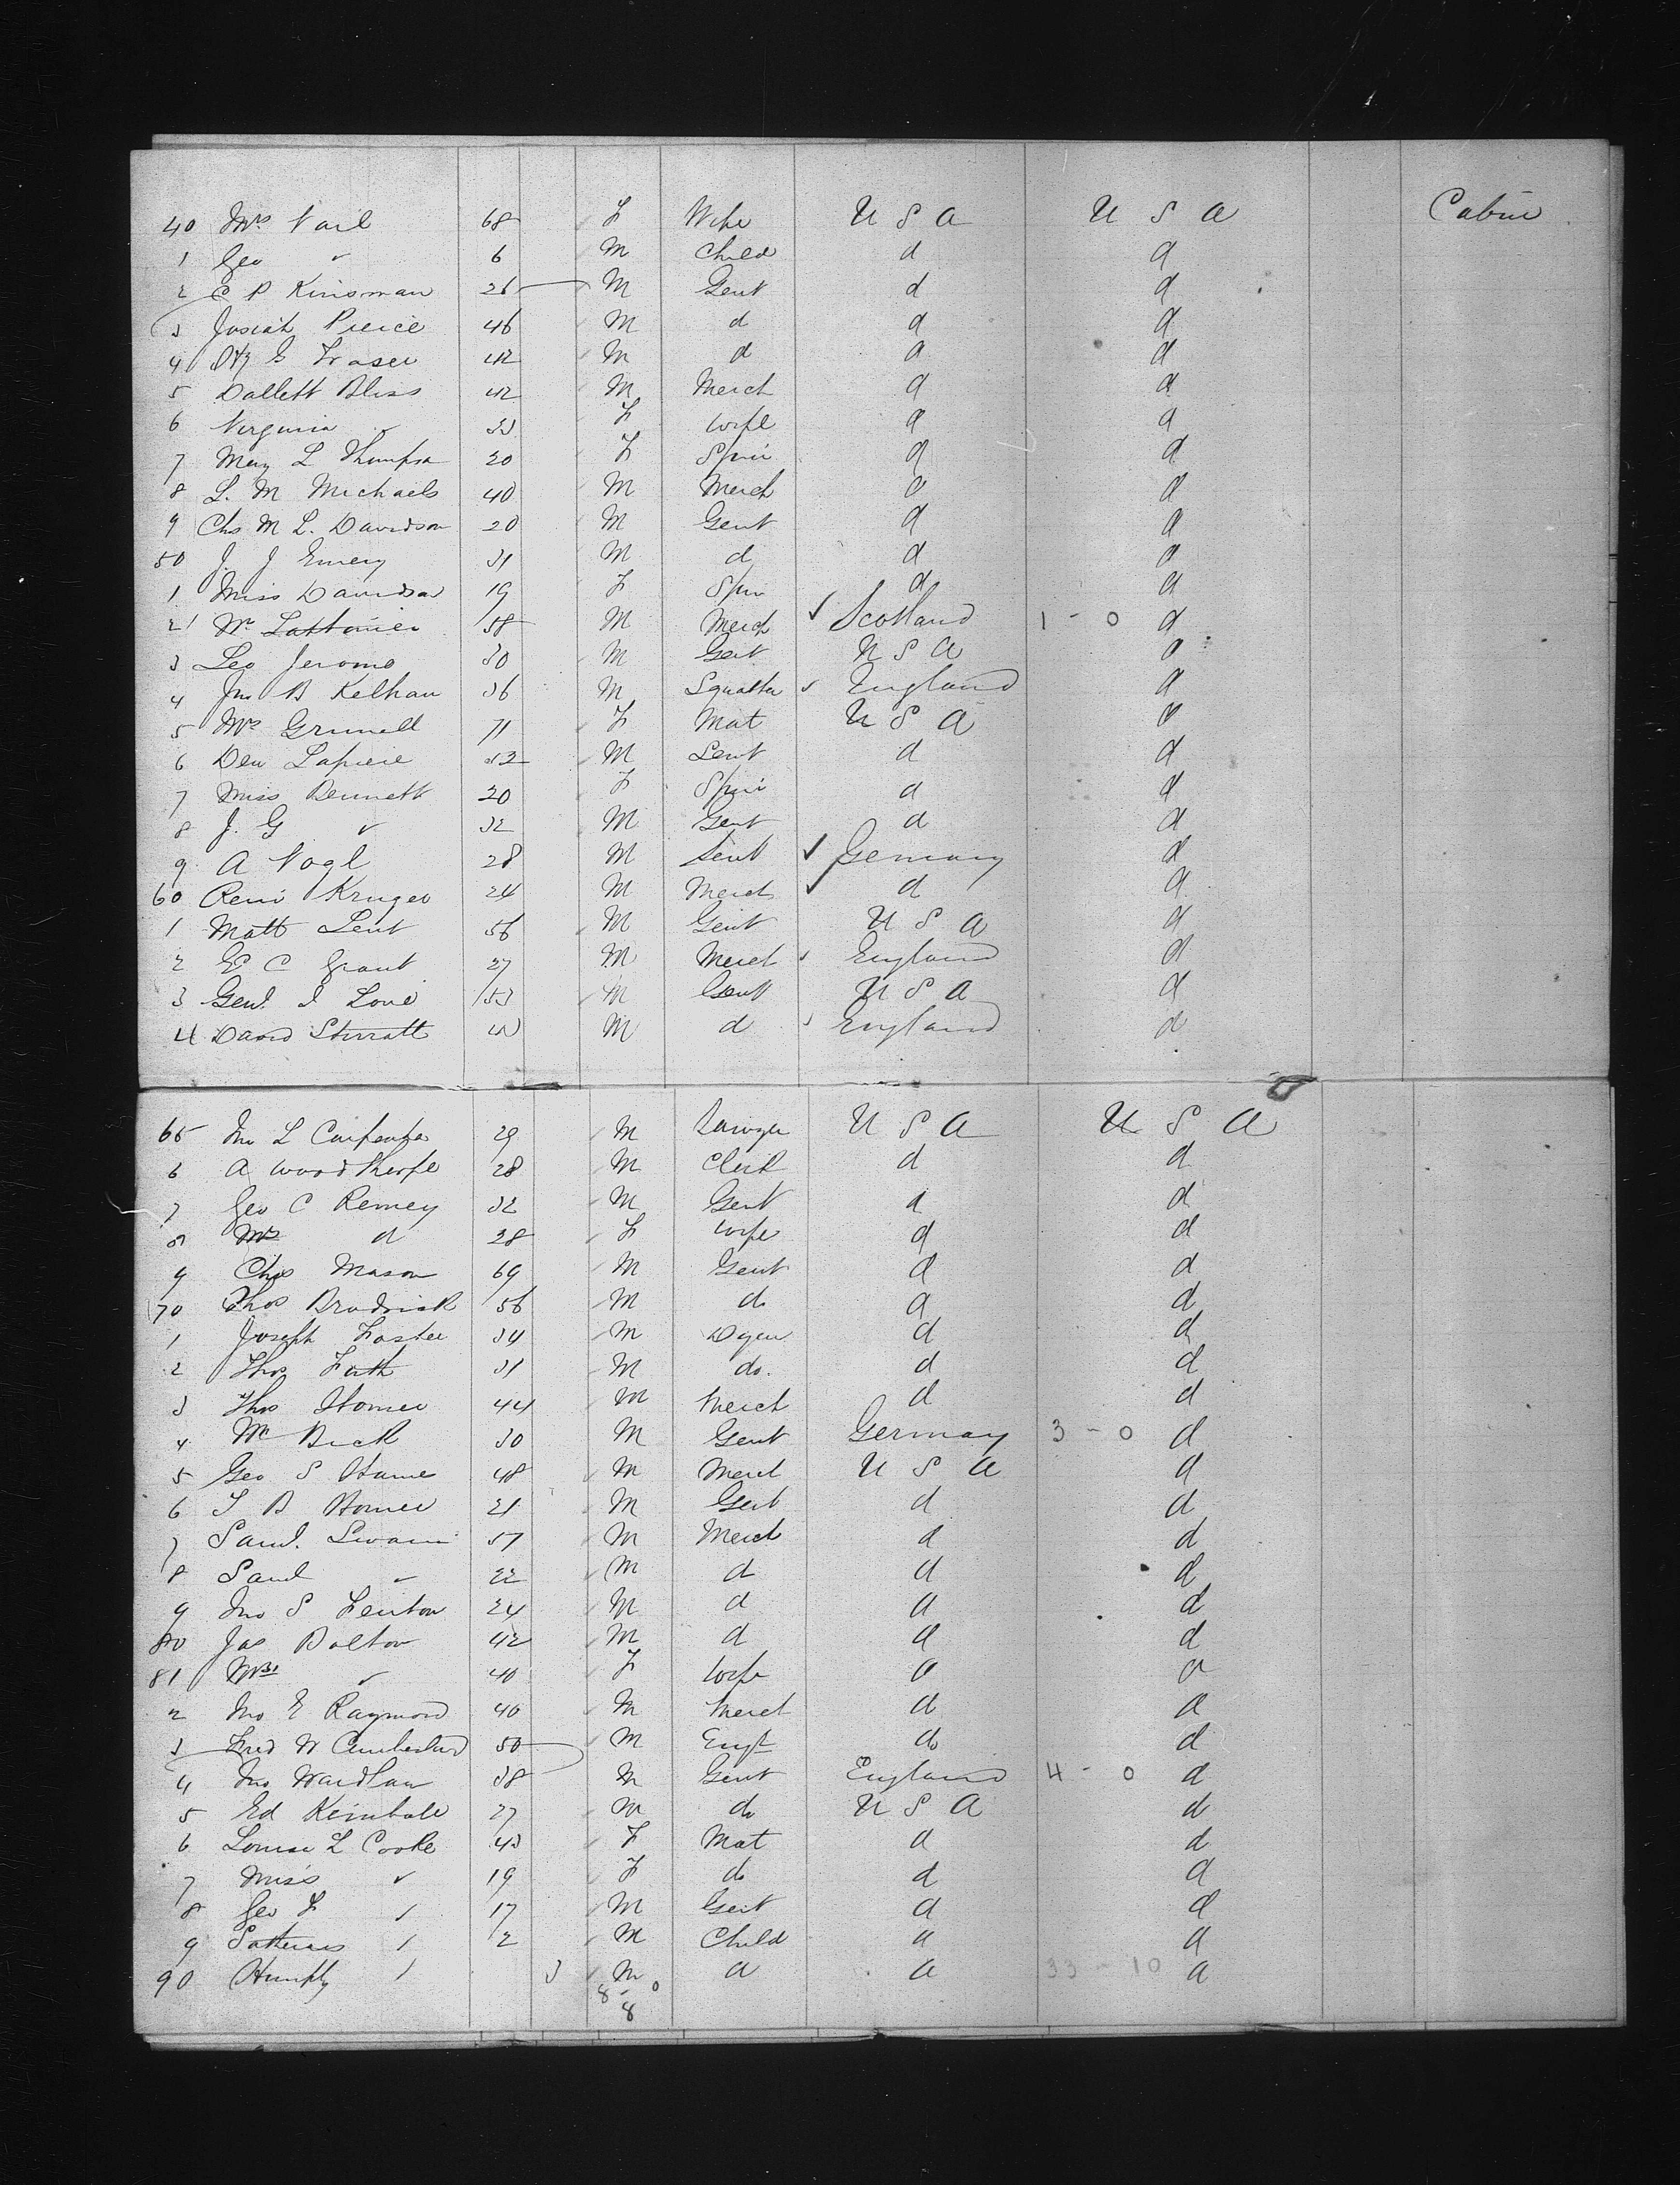 40 Mrs Vail 68 F Wife U S A U S A Cabin
1 Geo " 6 M Child d d
2 C P Kinsman 26 M Gent d d
3 Josiah Pierce 46 M d d d
4 G Fraser 42 M d d d
5 Dallett Bliss 42 M Merch d d
6 Virginia " 33 F Wife d d
7 Mary L Thompson 20 F Spin d d
8 L. M Michaels 40 M Merch d d
9 Chs M L. Davidson 20 M Gent d d
50 J. J Emery 31 M d d d
1 Miss Davidson 19 F Spin d d
2 Mr 58 M Merch Scotland 1 - 0 d
3 Leo Jerome 30 M Gent U S A d
4 Jno B Kelham 36 M Squatter England d
5 Mrs Grinnell 71 F Mat U S A d
6 Den Lapiere 32 M Gent d d
7 Miss Bennett 20 F Spin d d
8 J. G " 32 M Gent d d
9 A Vogl 28 M Gent Germany d
60 Kruger 24 M Merch d d
1 Matt Lent 56 M Gent U S A d
2 C Grant 27 M Merch England d
3 Genl. I Love 53 M Gent U S A d
4 David Stirratt M d England d
65 Jno L Carpenter 29 M Lawyer U S A U S A
6 A Woodthorpe 28 M Clerk d d
7 Geo C Remey 32 M Gent d d
8 Mrs d 28 F Wife d d
9 Chas Mason 69 M Gent d d
70 Thos Brodrick 56 M do d d
1 Joseph Foster 34 M Dyer d d
2 Thos Firth 31 M do. d d
3 Thos Homer 44 M Merch d d
4 Mr Bick 30 M Gent Germany 3 - 0 d
5 Geo S Hame 48 M Merch U S A d
6 T B Homer 21 M Gent d d
7 Saml. Swann 57 M Merch d d
8 Saml " 22 M d d d
9 Jno S Fenton 24 M d d d
80 Jas Bolton 42 M d d d
81 Mrs " 40 F Wife d d
2 Jno E Raymond 40 M Merch d d
3 Fred W Cumberland 50 M Engr do d
4 Jno Wardlaw 38 M Gent England 4 - 0 d
5 Ed Kimball 27 M do U S A d
6 Louise L Cooke 43 F Mat d d
7 Miss " 19 F do d d
8 Geo F " 17 M Gent d d
9 " 2 M Child d d
90 Humply " 3 M d d 33 - 10 d
8 - 0
8